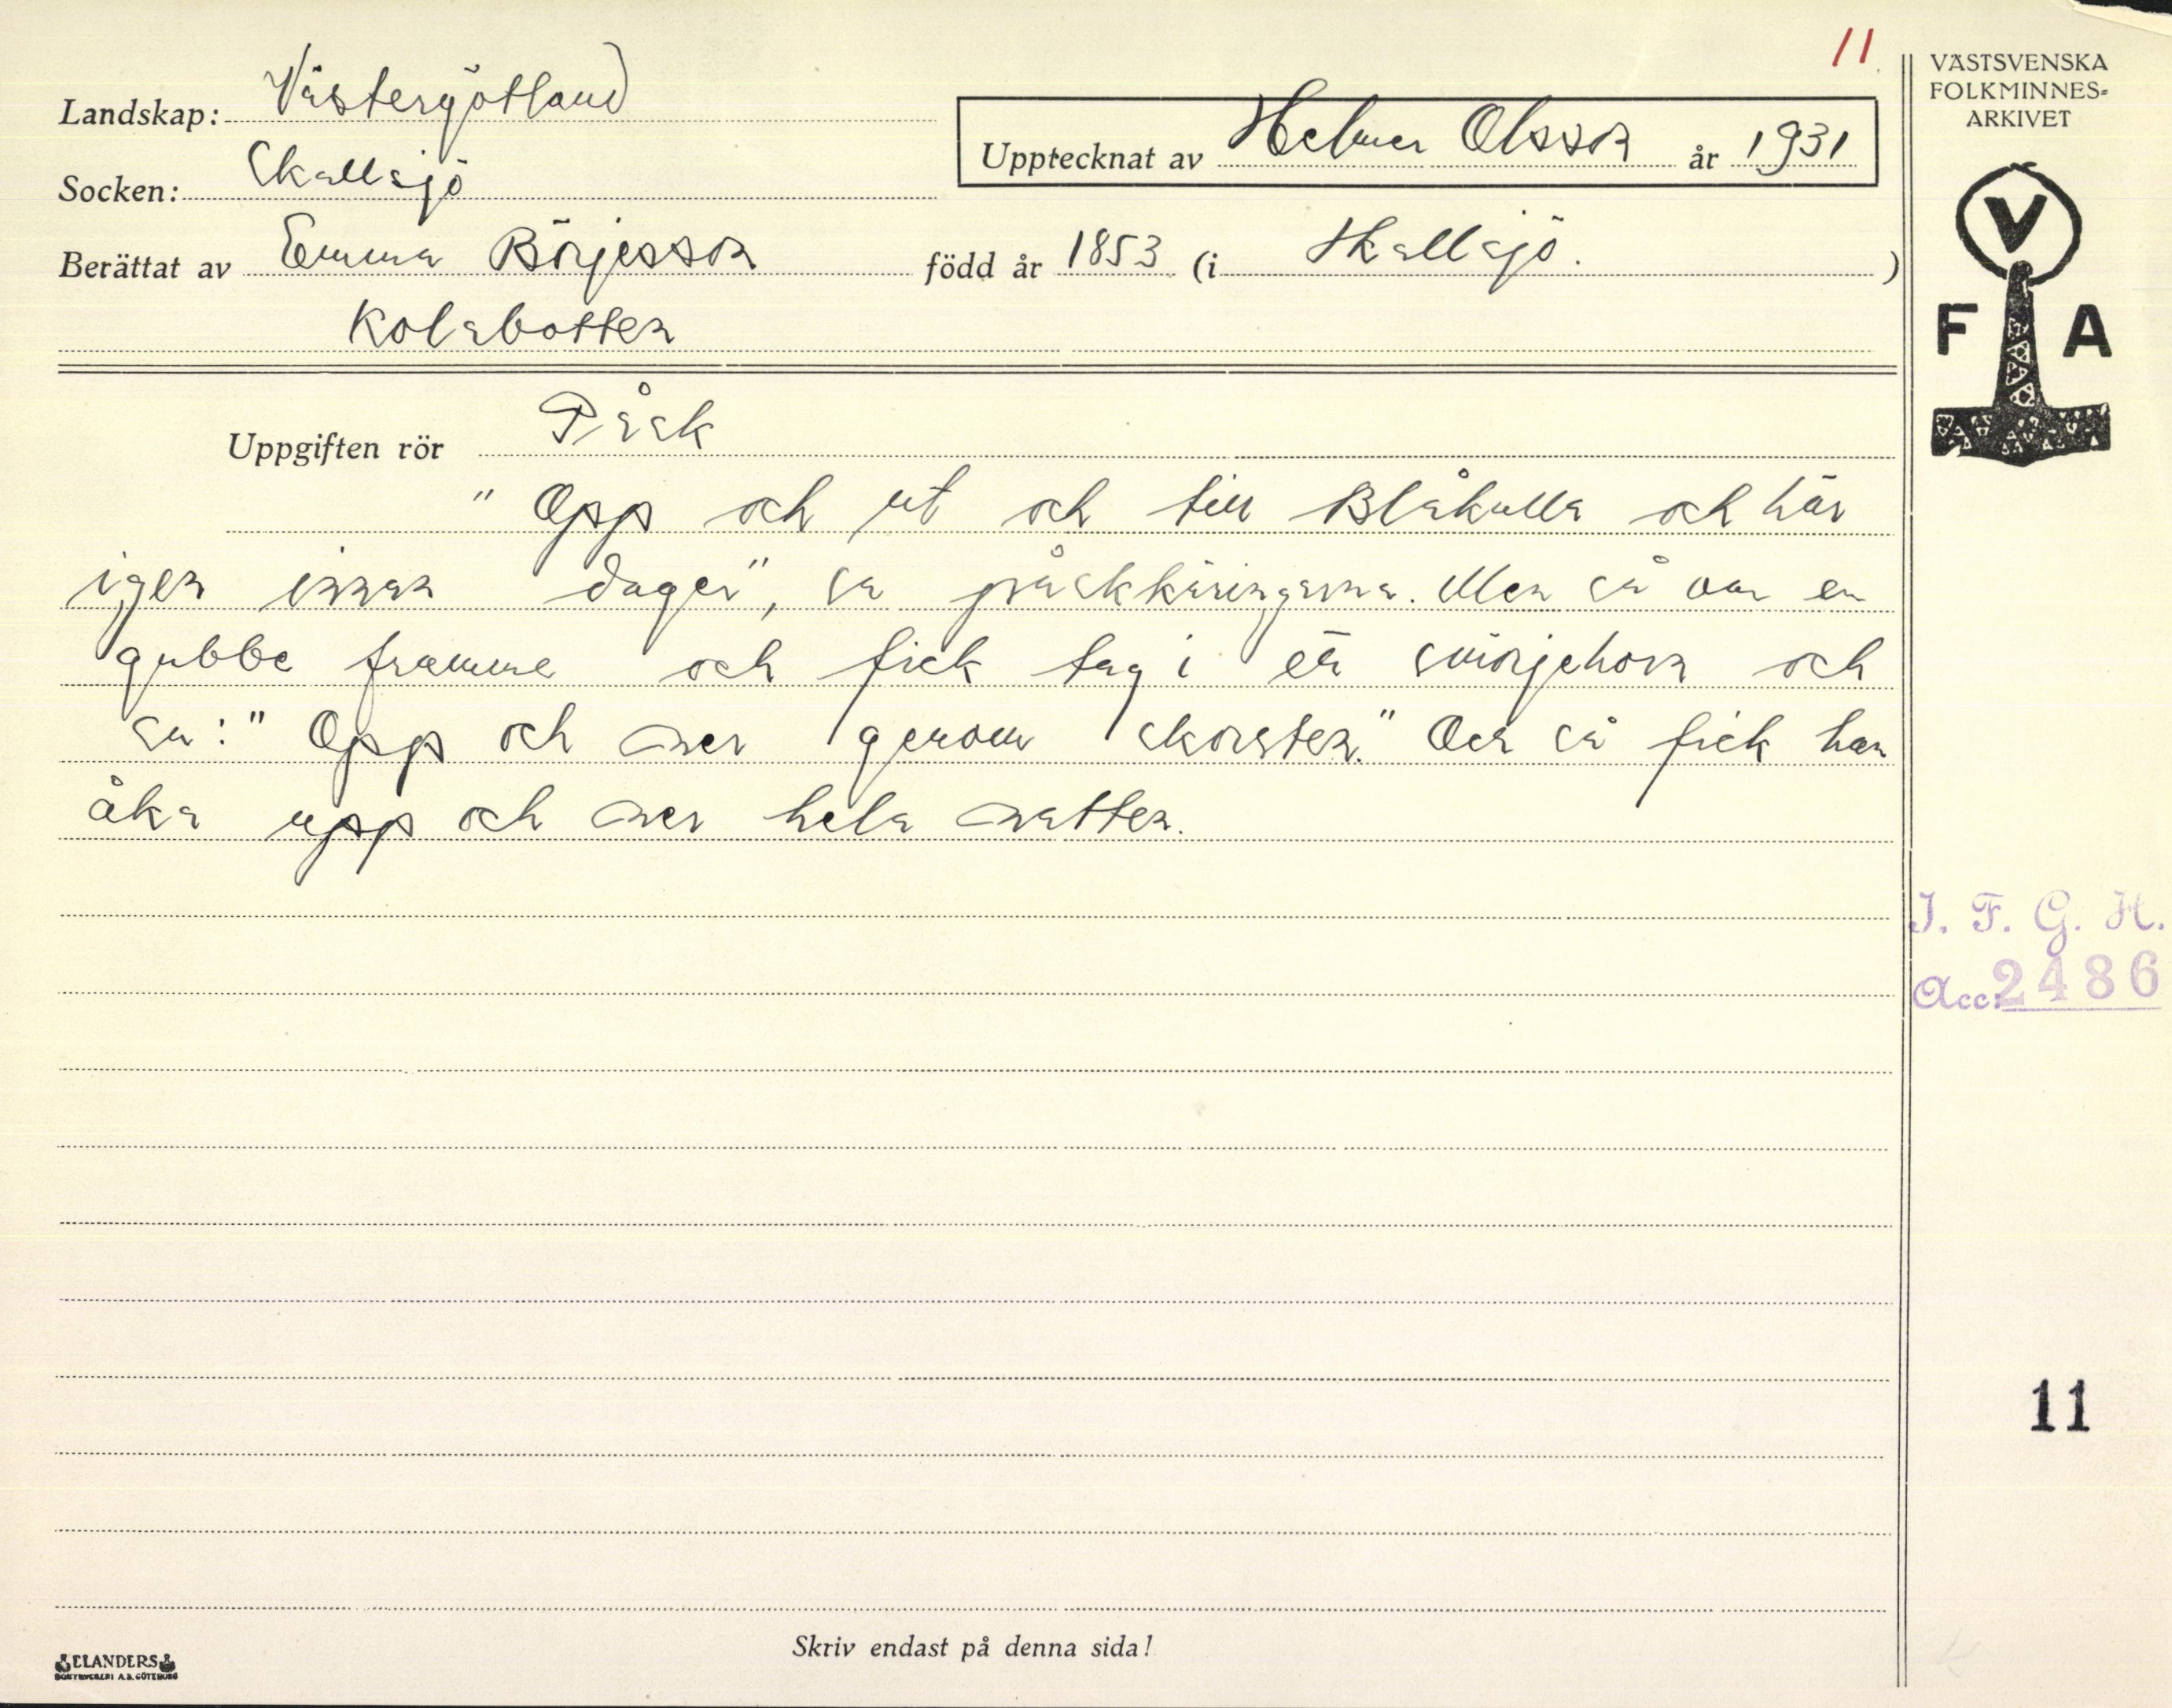 11
Landskap: Västergötland
Socken: Skallsjö
Upptecknat av Helmer Olsson år 1931
Berättat av Emma Börjesson född år 1853 (i Skallsjö.)
Kolabotten
VÄSTSVENSKA
FOLKMINNES-
ARKIVET
V
F A
Uppgiften rör Påsk
" Opp och ut och till Blåkulla och här
igen innan dager", sa påskkäringarna. Men så var en
gubbe framme och fick tag i ett smörjehorn och
sa: " Opp och ner genom skorsten." Och så fick han
åka upp och ner hela natten.
I. F. G. H.
Acc. 2486
11
Skriv endast på denna sida!
ELANDERS
BOKTRYCKERI A.B. GÖTEBORG